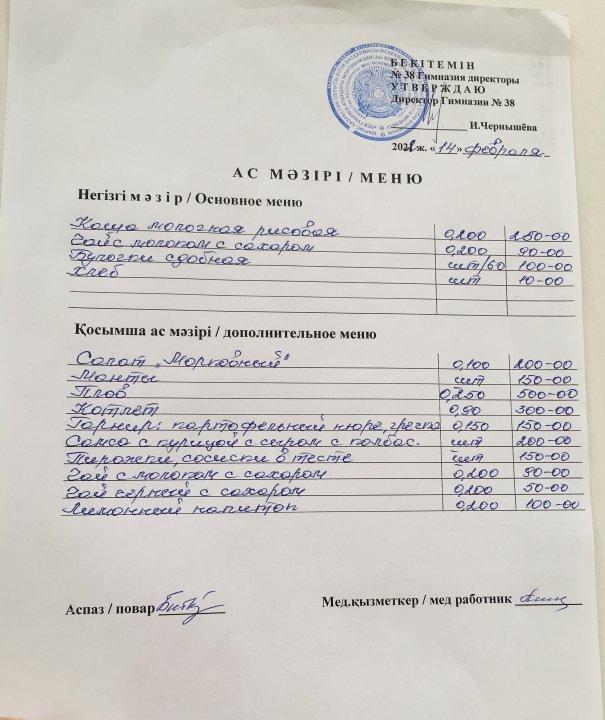 БЕКІТЕМІН
№ 38 Гимназия директоры
УТВЕРЖДАЮ
Директор Гимназии № 38
И.Чернышёва
202 ж. «14» февраля
АС МӘЗІРІ / МЕНЮ
Негізгі мәзір / Основное меню
Каша молочная рисовая 0,200 250-00
Чай с молоком с сахаром 0,200 90-00
Булочки сдобная шт/60 100-00
Хлеб шт 10-00
Қосымша ас мәзірі / дополнительное меню
Салат „Морковный" 0,100 200-00
Манты шт 150-00
Плов 0,250 500-00
Котлет 0,90 300-00
Гарнир: картофельный пюре, гречка 0,150 150-00
Самса с курицой с сыром с колбас. шт 200-00
Пирожки, сосиски в тесте шт 150-00
Чай с молоком с сахаром 0,200 90-00
Чай черный с сахаром 0,200 50-00
Лимонный напиток 0,200 100-00
Аспаз / повар
Мед.қызметкер / мед работник